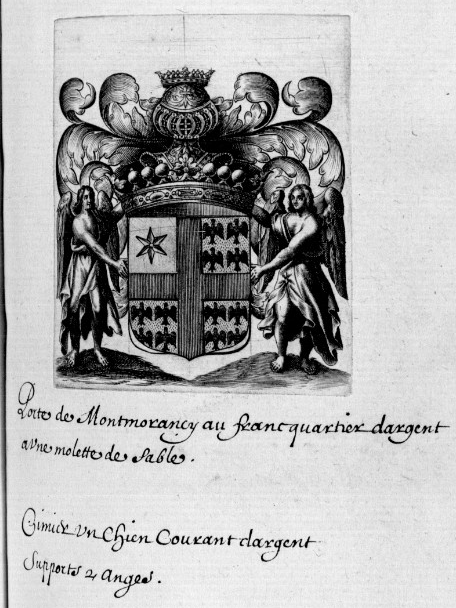 Porte de Montmorançy au francquartier dargent
avne molette de sable.
Cimier vn Chien Courant dargent
Supports 2 Anges.